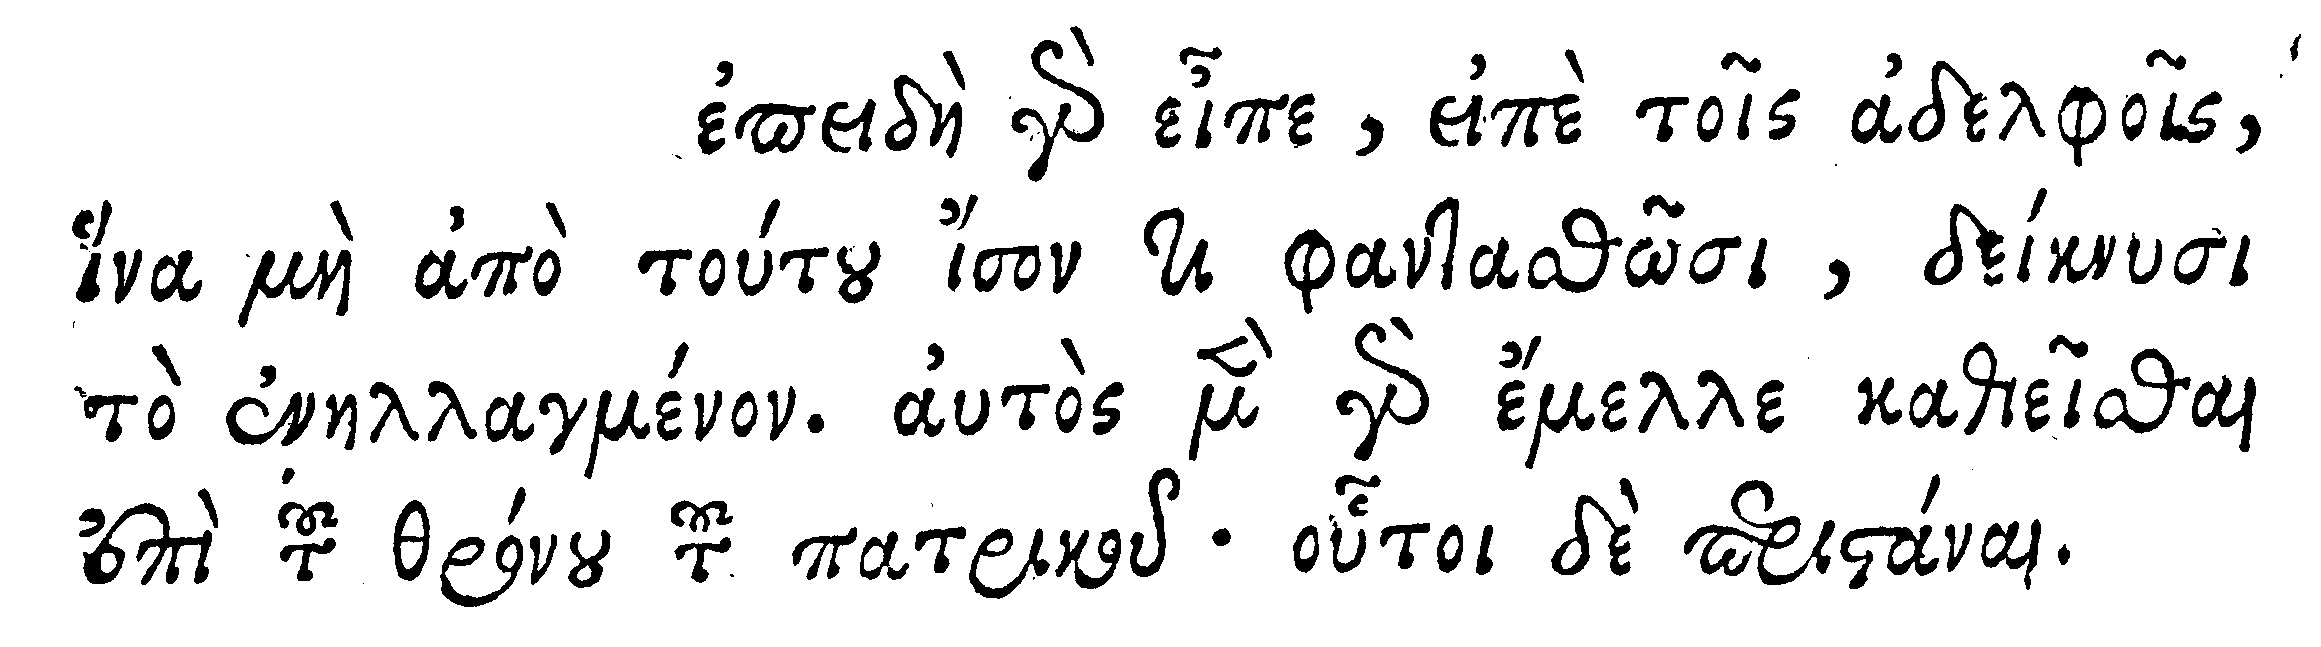 ἐπειδὴ γὰρ εἶπε, εἰπὲ τοῖς ἀδελφοῖς,
ἵνα μὴ ἀπὸ τούτου ἴσον τι φαντασθῶσι, δείκνυσι
τὸ ἐνηλλαγμένον. αὐτὸς μὲν γὰρ ἔμελλε καθιεῖσθαι
ἐπὶ τοῦ θρόνου τοῦ πατρικοῦ· οὗτοι δὲ παριστάναι.